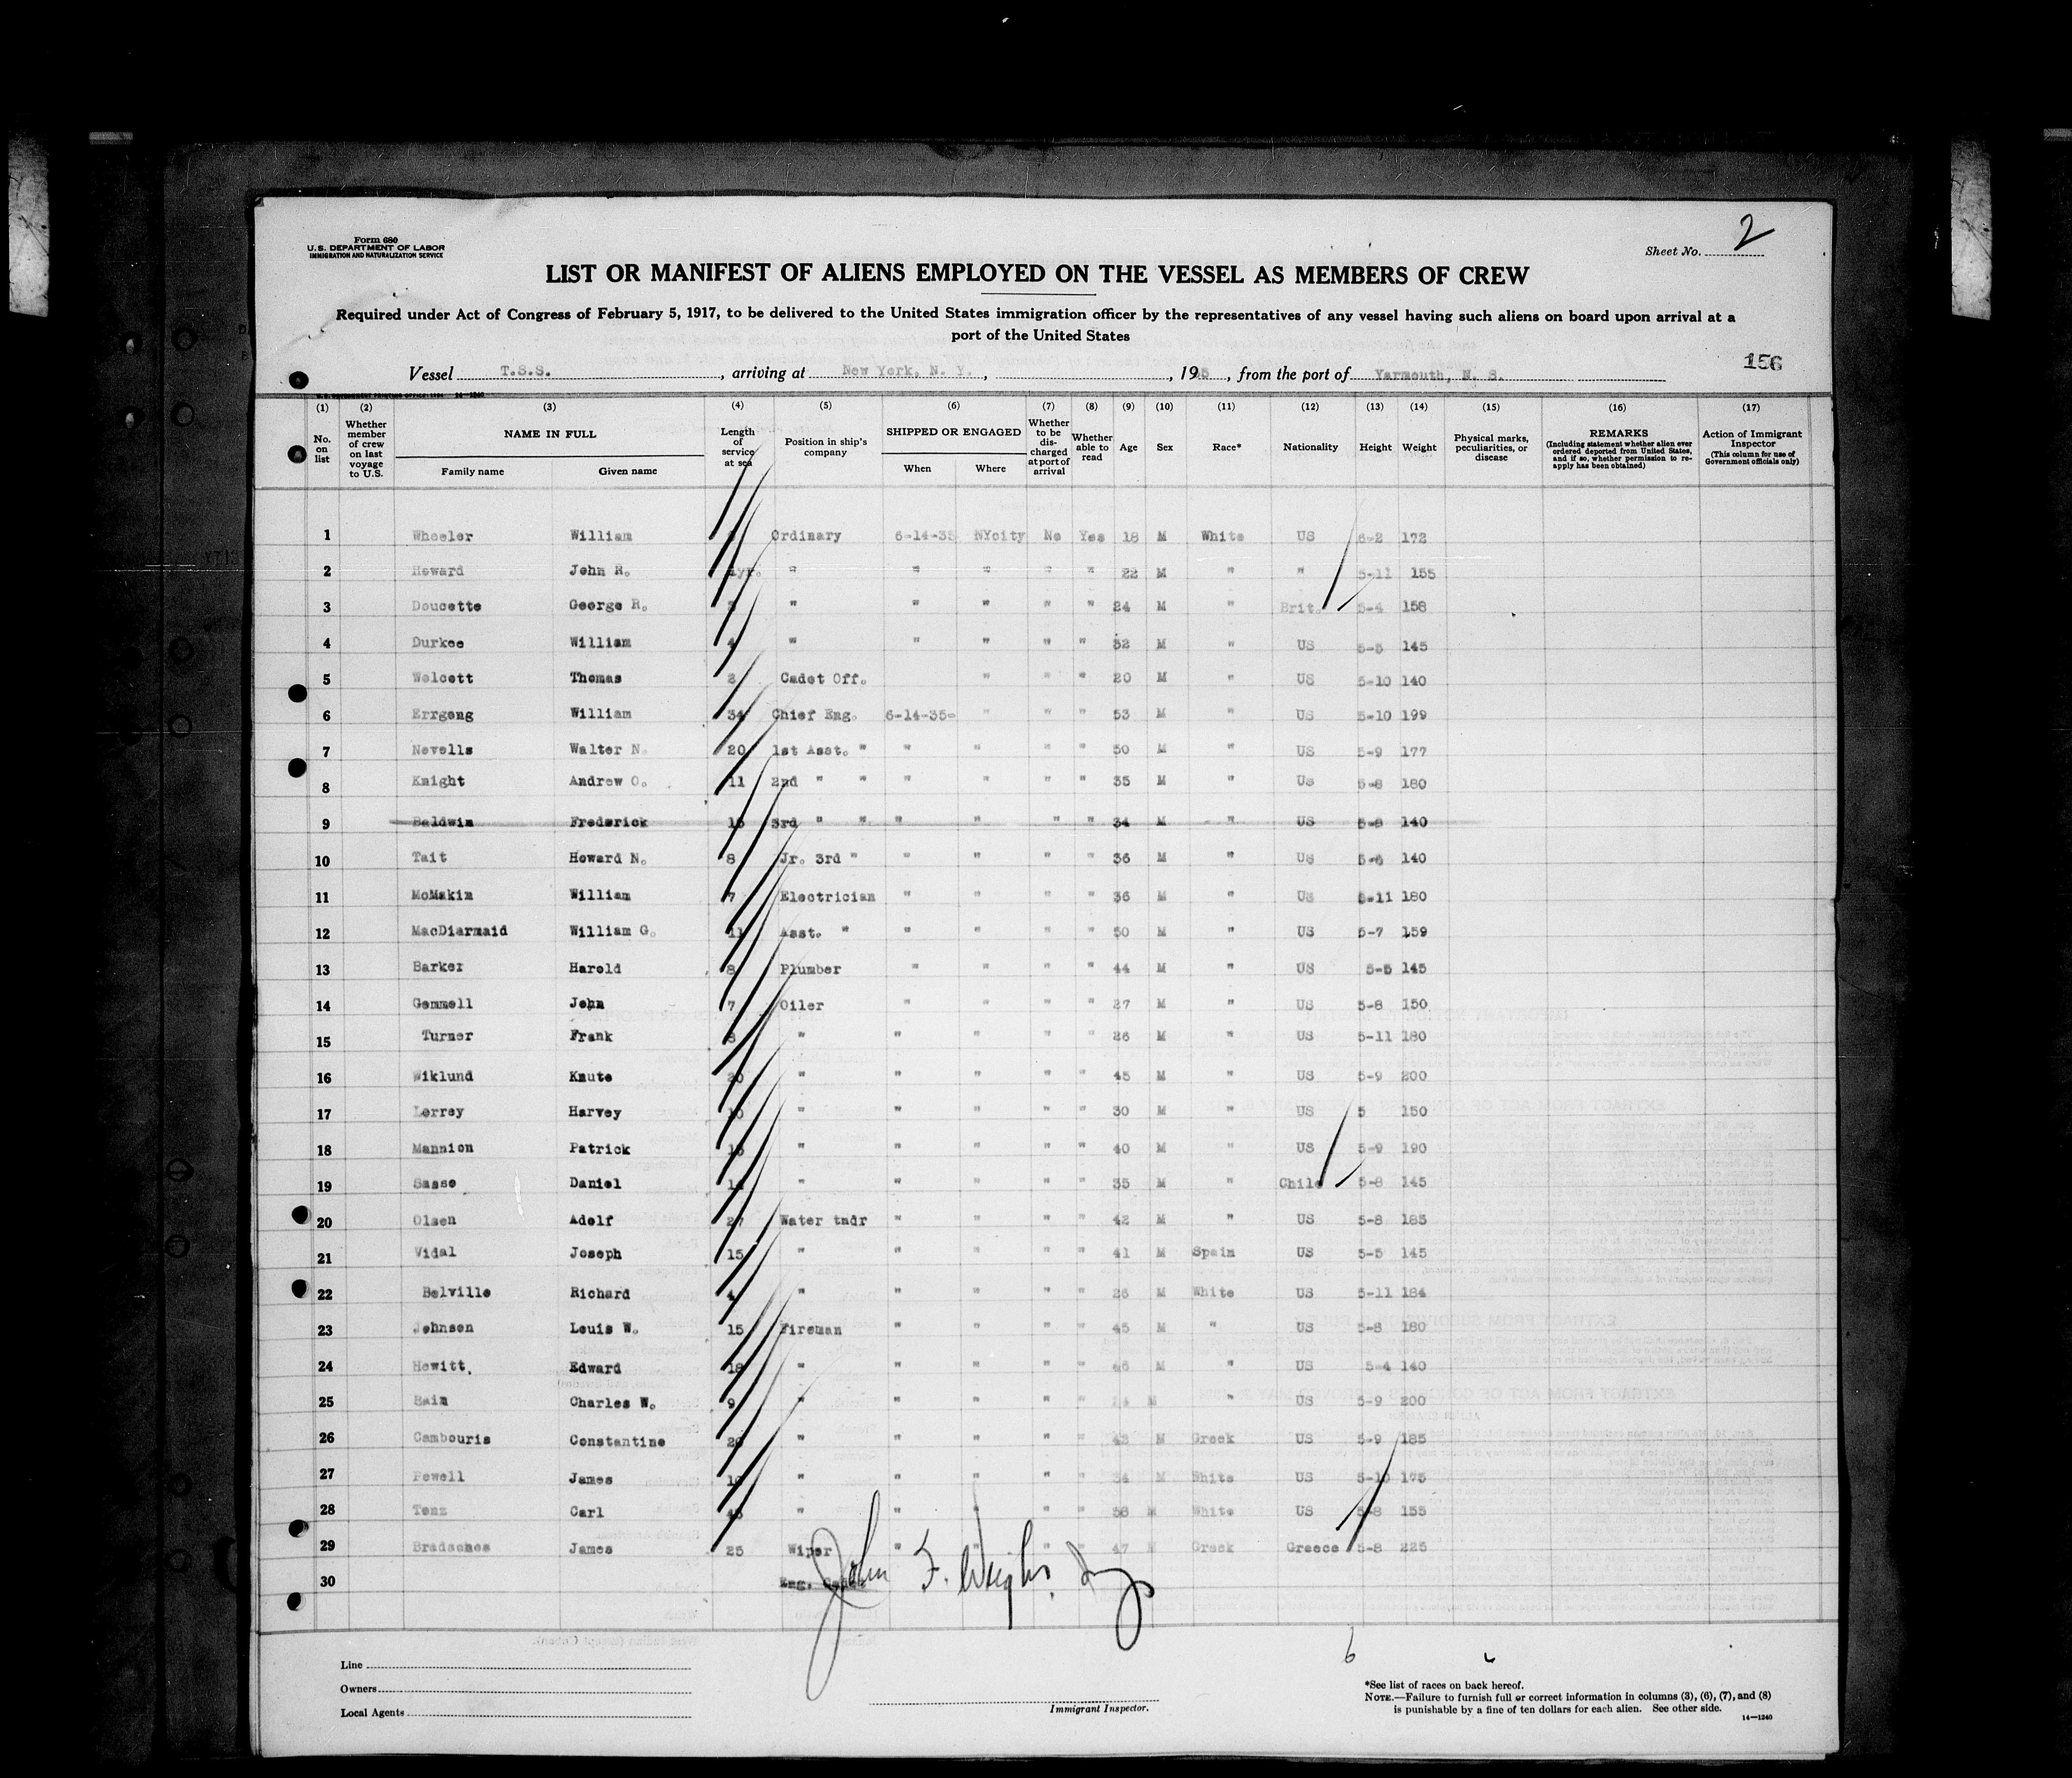 Form 680
U.S. DEPARTMENT OF LABOR
IMMIGRATION AND NATURALIZATION SERVICE
Sheet No. 2
LIST OR MANIFEST OF ALIENS EMPLOYED ON THE VESSEL AS MEMBERS OF CREW
Required under Act of Congress of February 5, 1917, to be delivered to the United States immigration officer by the representatives of any vessel having such aliens on board upon arrival at a
port of the United States
156
Vessel T.S.S. , arriving at New York, N. Y. , , 1935 , from the port of Yarmouth, N. S.
(1) (2) (3) (4) (5) (6) (7) (8) (9) (10) (11) (12) (13) (14) (15) (16) (17)
No. on list Whether member of crew on last voyage to U.S. NAME IN FULL Family name Given name Length of service at sea Position in ship's company SHIPPED OR ENGAGED When Where Whether to be discharged at port of arrival Whether able to read Age Sex Race* Nationality Height Weight Physical marks, peculiarities, or disease REMARKS (Including statement whether alien ever ordered deported from United States, and if so, whether permission to reapply has been obtained) Action of Immigrant Inspector (This column for use of Government officials only)
1 Wheeler William Ordinary 6-14-35 NYcity No Yes 18 M White US 6-2 172
2 Howard John R. 1yr. " " " " " 22 M " " 5-11 155
3 Doucette George R. 3 " " " " " 24 M " Brit. 5-4 158
4 Durkee William 4 " " " " " 32 M " US 5-5 145
5 Wolcott Thomas 2 Cadet Off. " " " 20 M " US 5-10 140
6 Errgong William 34 Chief Eng. 6-14-35- " " " 53 M " US 5-10 199
7 Nevells Walter N. 20 1st Asst. " " " " " 50 M " US 5-9 177
8 Knight Andrew O. 11 2nd " " " " " " 35 M " US 5-8 180
9 Baldwin Frederick 15 3rd " " " " " " 34 M " US 5-8 140
10 Tait Howard N. 8 Jr. 3rd " " " " " 36 M " US 5-6 140
11 McMakin William 7 Electrician " " " " 36 M " US 5-11 180
12 MacDiarmaid William G. 11 Asst. " " " " " 50 M " US 5-7 159
13 Barker Harold 8 Plumber " " " " 44 M " US 5-5 145
14 Gemmell John 7 Oiler " " " " 27 M " US 5-8 150
15 Turner Frank 8 " " " " " 26 M " US 5-11 180
16 Wiklund Knute 20 " " " " " 45 M " US 5-9 200
17 Lorrey Harvey 10 " " " " " 30 M " US 5 150
18 Mannion Patrick " " " " " 40 M " US 5-9 190
19 Sasso Daniel " " " " " 35 M " Chile 5-8 145
20 Olsen Adolf 27 Water tndr " " " " 42 M " US 5-8 185
21 Vidal Joseph 15 " " " " " 41 M Spain US 5-5 145
22 Belville Richard 4 " " " " " 26 M White US 5-11 184
23 Johnson Louis W. 15 Fireman " " " " 45 M " US 5-8 180
24 Hewitt, Edward 18 " " " " " 46 M " US 5-4 140
25 Bain Charles W. 9 " " " " " M " US 5-9 200
26 Cambouris Constantine 20 " " " " " 43 M Greek US 5-9 185
27 Powell James 10 " " " " " 34 M White US 5-10 175
28 Tenz Carl " " " " " 58 M White US 5-8 155
29 Bradsches James 25 Wiper " " " " 47 M Greek Greece 5-8 225
30 Eng.
John F.
Line
Owners
Local Agents
Immigrant Inspector.
6
*See list of races on back hereof.
NOTE.—Failure to furnish full or correct information in columns (3), (6), (7), and (8)
is punishable by a fine of ten dollars for each alien. See other side.
14—1240